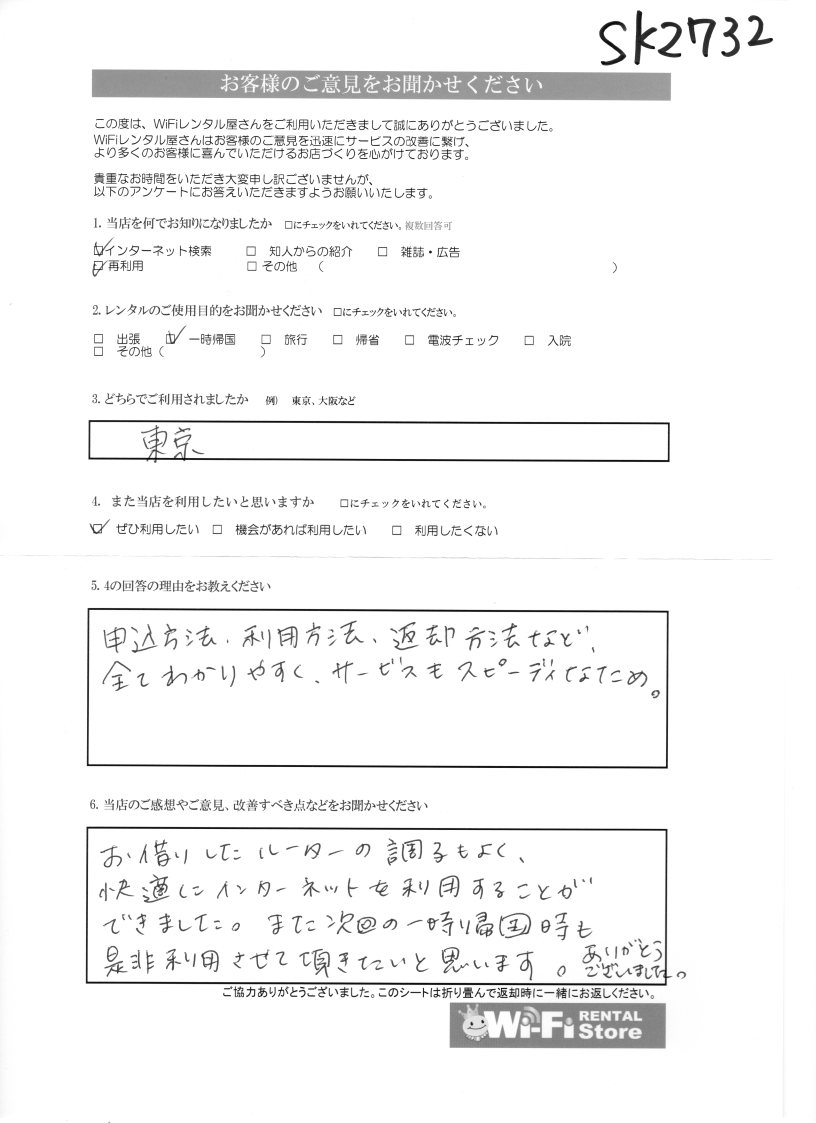 SK2732
お客様のご意見をお聞かせください
この度は、WiFiレンタル屋さんをご利用いただきまして誠にありがとうございました。
WiFiレンタル屋さんはお客様のご意見を迅速にサービスの改善に繋げ、
より多くのお客様に喜んでいただけるお店づくりを心がけております。
貴重なお時間をいただき大変申し訳ございませんが、
以下のアンケートにお答えいただきますようお願いいたします。
1. 当店を何でお知りになりましたか □にチェックをいれてください。複数回答可
☑インターネット検索 □ 知人からの紹介 □ 雑誌・広告
☑再利用 □ その他 ( )
2. レンタルのご使用目的をお聞かせください □にチェックをいれてください。
□ 出張 ☑ 一時帰国 □ 旅行 □ 帰省 □ 電波チェック □ 入院
□ その他 ( )
3. どちらでご利用されましたか 例) 東京、大阪など
東京
4. また当店を利用したいと思いますか □にチェックをいれてください。
☑ ぜひ利用したい □ 機会があれば利用したい □ 利用したくない
5. 4の回答の理由をお教えください
申込方法、利用方法、返却方法など、
全てわかりやすく、サービスもスピーディなため。
6. 当店のご感想やご意見、改善すべき点などをお聞かせください
お借りしたルーターの調子もよく、
快適にインターネットを利用することが
できました。また次回の一時帰国時も
是非利用させて頂きたいと思います。ありがとう
ございました。
ご協力ありがとうございました。このシートは折り畳んで返却時に一緒にお返しください。
Wi-Fi RENTAL
Store